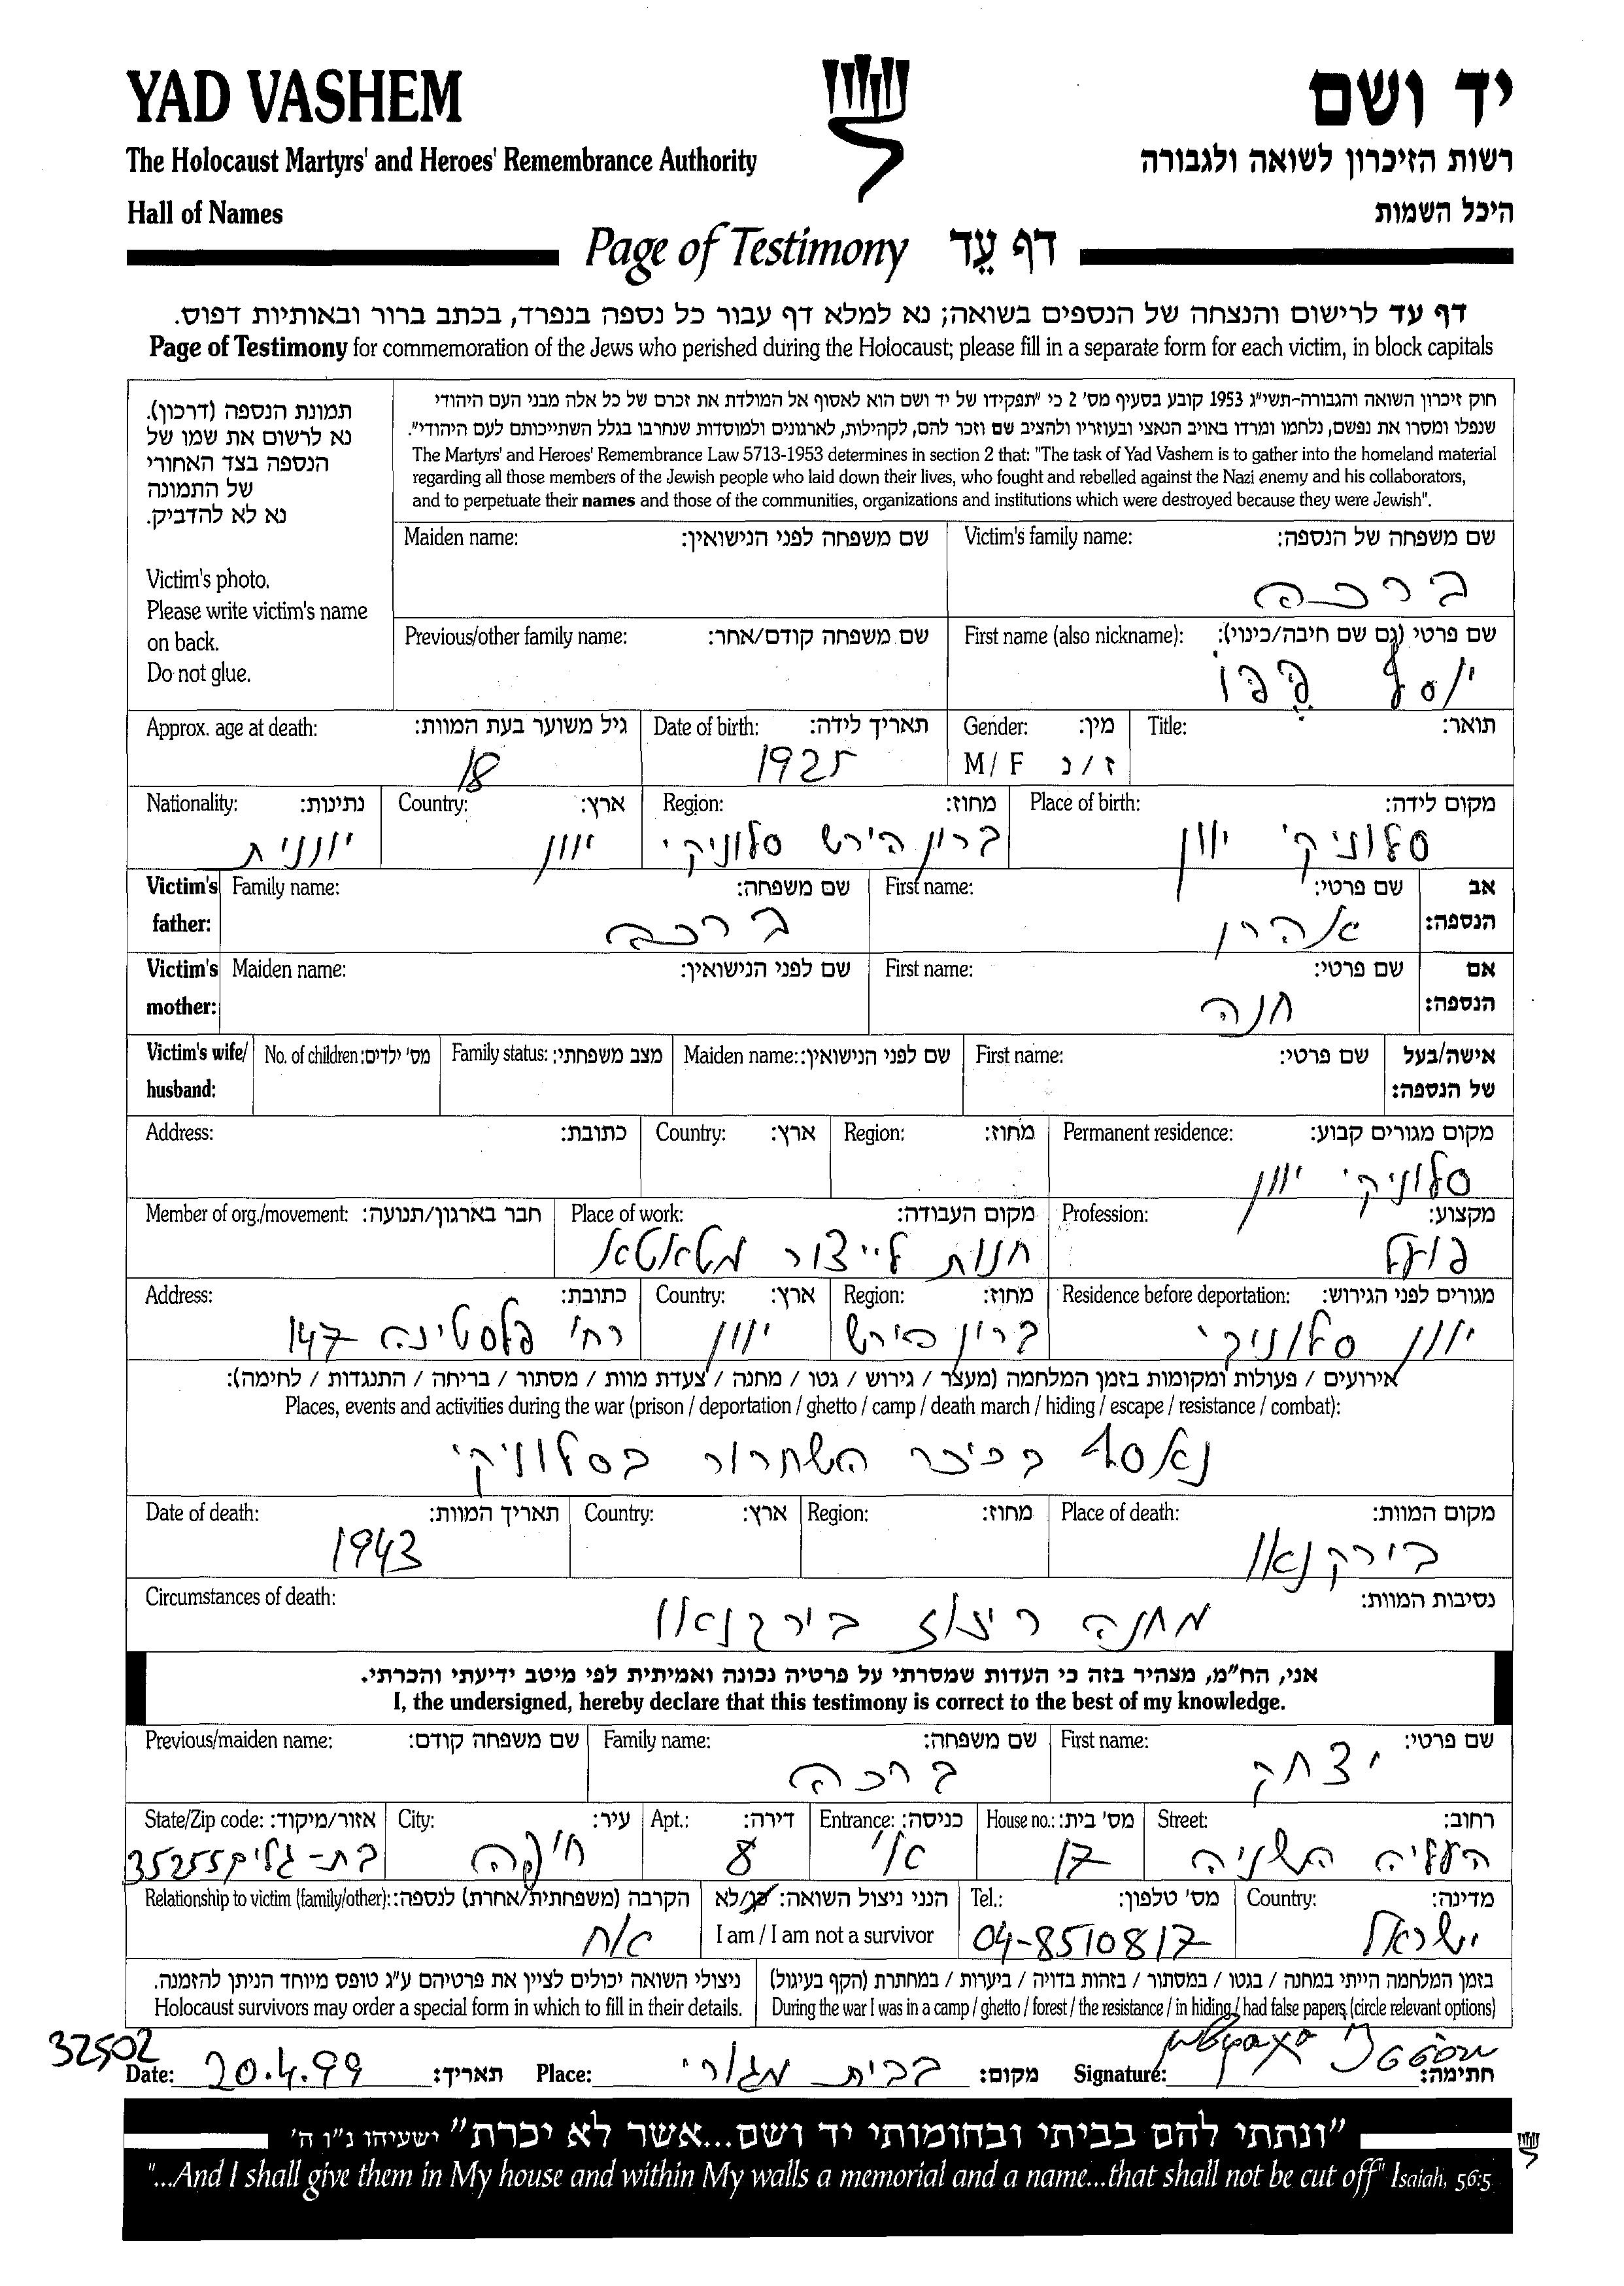 YAD VASHEM
יד ושם
The Holocaust Martyrs' and Heroes' Remembrance Authority
רשות הזיכרון לשואה ולגבורה
Hall of Names
היכל השמות
Page of Testimony דף עֵד
דף עד לרישום והנצחה של הנספים בשואה; נא למלא דף עבור כל נספה בנפרד, בכתב ברור ובאותיות דפוס.
Page of Testimony for commemoration of the Jews who perished during the Holocaust; please fill in a separate form for each victim, in block capitals
תמונת הנספה (דרכון).
נא לרשום את שמו של
הנספה בצד האחורי
של התמונה
נא לא להדביק.
Victim's photo.
Please write victim's name
on back.
Do not glue.
חוק זיכרון השואה והגבורה-תשי"ג 1953 קובע בסעיף מס' 2 כי "תפקידו של יד ושם הוא לאסוף אל המולדת את זכרם של כל אלה מבני העם היהודי
שנפלו ומסרו את נפשם, נלחמו ומרדו באויב הנאצי ובעוזריו ולהציב שם וזכר להם, לקהילות, לארגונים ולמוסדות שנחרבו בגלל השתייכותם לעם היהודי".
The Martyrs' and Heroes' Remembrance Law 5713-1953 determines in section 2 that: "The task of Yad Vashem is to gather into the homeland material
regarding all those members of the Jewish people who laid down their lives, who fought and rebelled against the Nazi enemy and his collaborators,
and to perpetuate their names and those of the communities, organizations and institutions which were destroyed because they were Jewish".
Victim's family name: שם משפחה של הנספה:
ברכה
Maiden name: שם משפחה לפני הנישואין:
First name (also nickname): שם פרטי (גם שם חיבה/כינוי):
יוסף פפו
Previous/other family name: שם משפחה קודם/אחר:
Title: תואר:
Gender: מין:
M / F ז / נ
Date of birth: תאריך לידה:
1925
Approx. age at death: גיל משוער בעת המוות:
18
Place of birth: מקום לידה:
סלוניקי יוון
Region: מחוז:
ברון הירש סלוניקי
Country: ארץ:
יוון
Nationality: נתינות:
יוונית
Victim's father: אב הנספה:
First name: שם פרטי:
אהרן
Family name: שם משפחה:
ברכה
Victim's mother: אם הנספה:
First name: שם פרטי:
חנה
Maiden name: שם לפני הנישואין:
Victim's wife/ husband: אישה/בעל של הנספה:
First name: שם פרטי:
Maiden name: שם לפני הנישואין:
Family status: מצב משפחתי:
No. of children: מס' ילדים:
Permanent residence: מקום מגורים קבוע:
סלוניקי יוון
Region: מחוז:
Country: ארץ:
Address: כתובת:
Profession: מקצוע:
פועל
Place of work: מקום העבודה:
חנות לייצור מטאטא
Member of org./movement: חבר בארגון/תנועה:
Residence before deportation: מגורים לפני הגירוש:
יוון סלוניקי
Region: מחוז:
ברון הירש
Country: ארץ:
יוון
Address: כתובת:
רח' פלסטינה 147
אירועים / פעולות ומקומות בזמן המלחמה (מעצר / גירוש / גטו / מחנה / צעדת מוות / מסתור / בריחה / התנגדות / לחימה):
Places, events and activities during the war (prison / deportation / ghetto / camp / death march / hiding / escape / resistance / combat):
נאסף בכיכר השחרור בסלוניקי
Place of death: מקום המוות:
בירקנאו
Region: מחוז:
Country: ארץ:
Date of death: תאריך המוות:
1943
Circumstances of death: נסיבות המוות:
מחנה ריכוז בירקנאו
אני, הח"מ, מצהיר בזה כי העדות שמסרתי על פרטיה נכונה ואמיתית לפי מיטב ידיעתי והכרתי.
I, the undersigned, hereby declare that this testimony is correct to the best of my knowledge.
First name: שם פרטי:
יצחק
Family name: שם משפחה:
ברכה
Previous/maiden name: שם משפחה קודם:
Street: רחוב:
העליה השניה
House no.: מס' בית:
17
Entrance: כניסה:
א'
Apt.: דירה:
8
City: עיר:
חיפה
State/Zip code: אזור/מיקוד:
בת-גלים 35255
Country: מדינה:
ישראל
Tel.: מס' טלפון:
04-8510817
הנני ניצול השואה: כן/לא
I am / I am not a survivor
Relationship to victim (family/other): הקרבה (משפחתית/אחרת) לנספה:
אח
בזמן המלחמה הייתי במחנה / בגטו / במסתור / בזהות בדויה / ביערות / במחתרת (הקף בעיגול)
During the war I was in a camp / ghetto / forest / the resistance / in hiding / had false papers (circle relevant options)
ניצולי השואה יכולים לציין את פרטיהם ע"ג טופס מיוחד הניתן להזמנה.
Holocaust survivors may order a special form in which to fill in their details.
32502
Date: 20.4.99 תאריך:
Place: בבית מגורי מקום:
Signature: חתימה:
"ונתתי להם בביתי ובחומותי יד ושם...אשר לא יכרת" ישעיהו נ"ו ה'
"...And I shall give them in My house and within My walls a memorial and a name...that shall not be cut off" Isaiah, 56:5